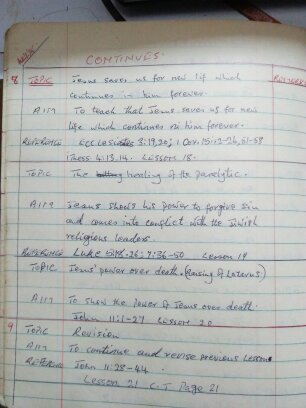 CONTINUES.
8 TOPIC Jesus saves us for new lif which
continues in him forever.
AIM To teach that Jesus saves us for new
life which continues in him forever.
REFERENCE Ecclesiastes 3:19,20; 1 Cor. 15:12-26, 51-58
1 thess 4:13.14. Lesson 18.
TOPIC The healing of the paralytic.
AIM Jesus shows his power to forgive sin
and comes into conflict with the Jewish
religious leaders.
REFERENCE Luke 7:36-50 Lesson 19
TOPIC Jesus' power over death. (Raising of Lazarus)
AIM To show the power of Jesus over death.
John 11:1-27 Lesson 20
9 TOPIC Revision
AIM To continue and revise previous Lessons
REFERENCE John 11:28-44.
Lesson 21 C.T Page 21